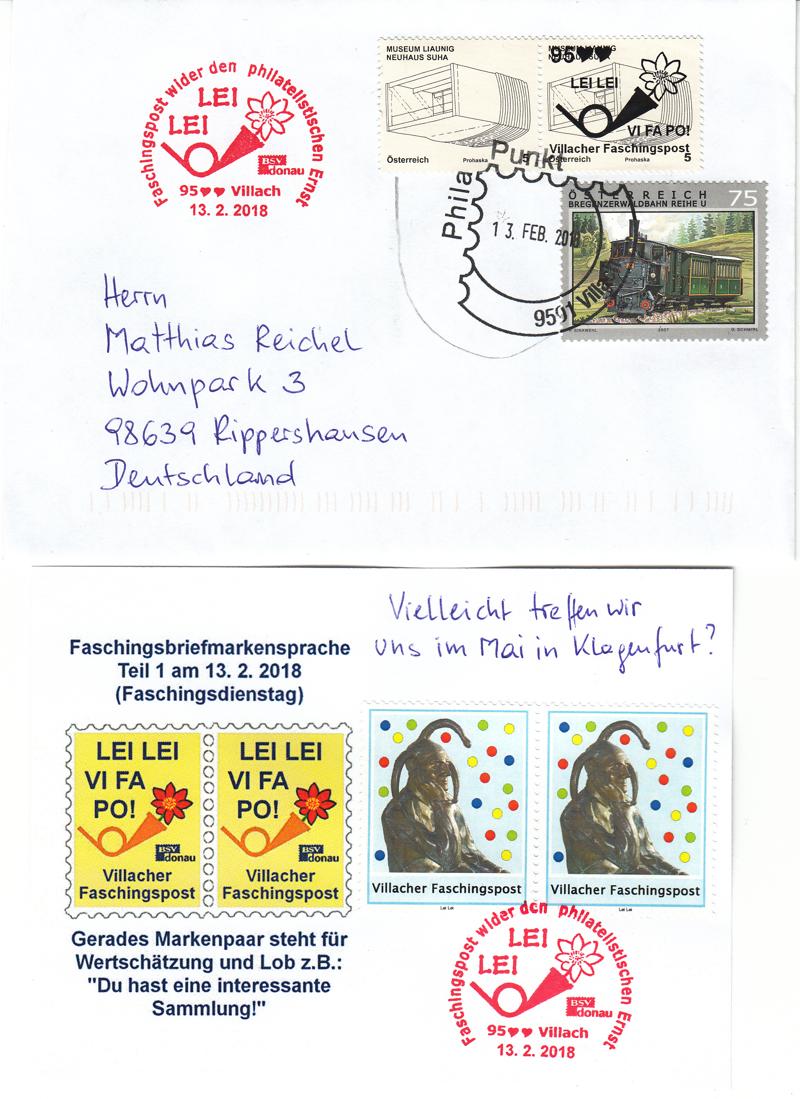 Faschingspost wider den philatelistischen Ernst
LEI
LEI
BSV
donau
95♥♥ Villach
13. 2. 2018
MUSEUM LIAUNIG
NEUHAUS SUHA
Österreich
Prohaska
5
MUSEUM LIAUNIG
NEUHAUS SUHA
95♥♥
LEI LEI
VI FA PO!
Villacher Faschingspost
Österreich
Prohaska
5
Phila Punkt
13. FEB. 2018
9501 Villa
ÖSTERREICH 75
BREGENZERWALDBAHN REIHE U
2007
G. SCHMIRL
Herrn
Matthias Reichel
Wohnpark 3
98639 Rippershausen
Deutschland
Vielleicht treffen wir
uns im Mai in Klagenfurt?
Faschingsbriefmarkensprache
Teil 1 am 13. 2. 2018
(Faschingsdienstag)
LEI LEI
VI FA
PO!
BSV
donau
Villacher
Faschingspost
LEI LEI
VI FA
PO!
BSV
donau
Villacher
Faschingspost
Villacher Faschingspost
Lei Lei
Villacher Faschingspost
Lei Lei
Gerades Markenpaar steht für
Wertschätzung und Lob z.B.:
"Du hast eine interessante
Sammlung!"
Faschingspost wider den philatelistischen Ernst
LEI
LEI
BSV
donau
95♥♥ Villach
13. 2. 2018